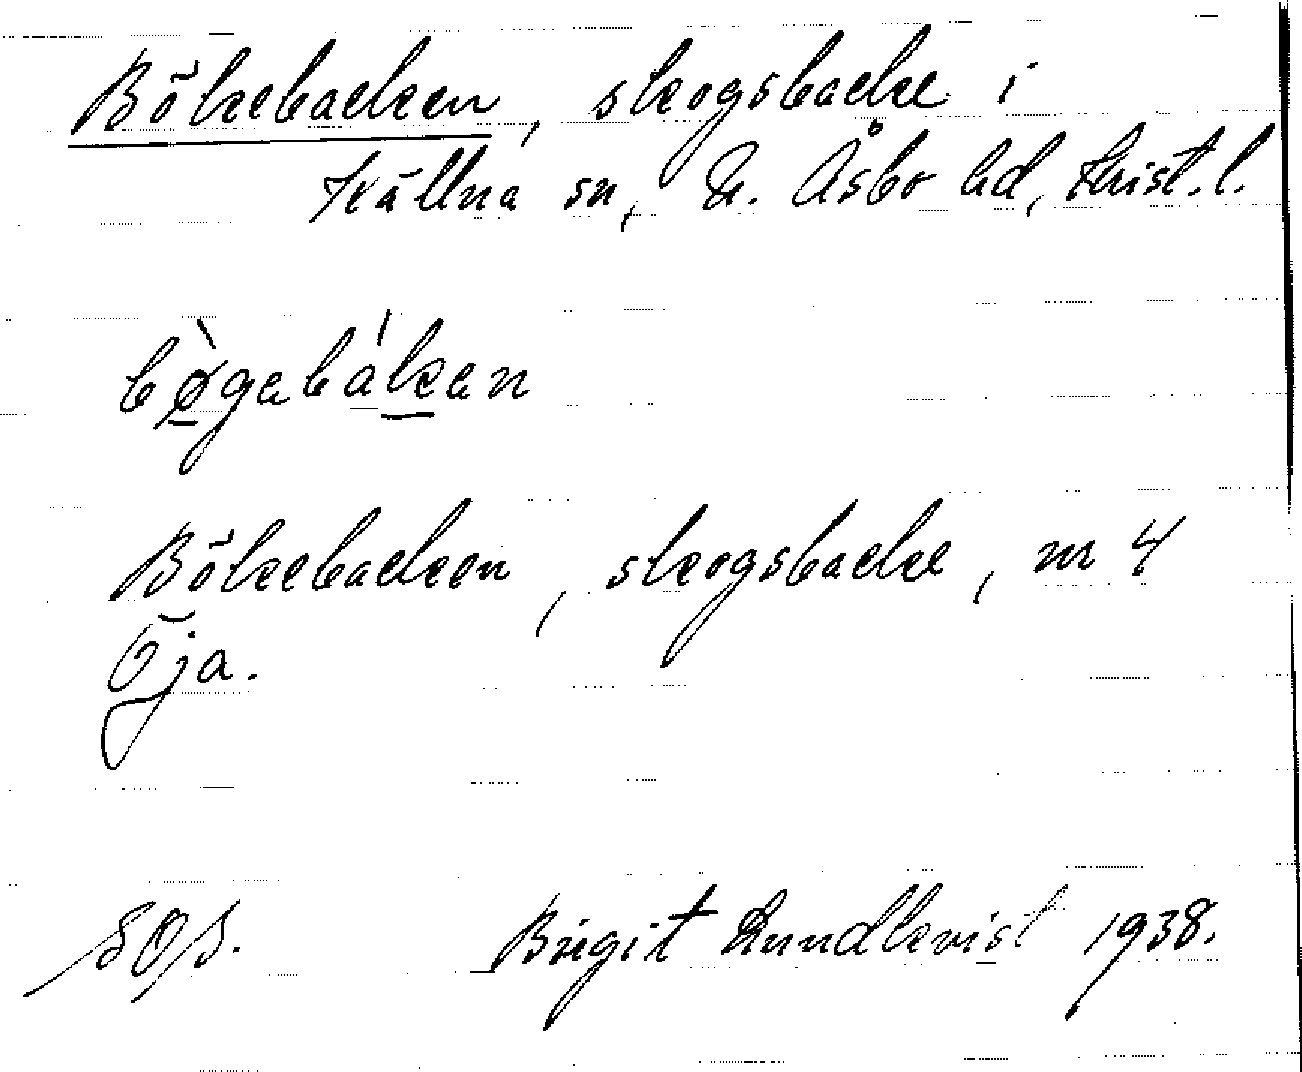 Bökebacken, skogsbacke i
Källna sn, N. Åsbo hd, Krist. l.
bø̀gabákan
Bökebacken, skogsbacke, nr 4
Öja.
SOS. Birgit Lundkvist 1938.